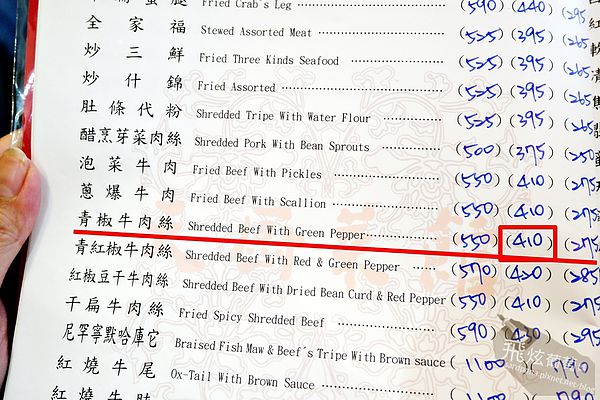 Fried Crab's Leg (590) (440) (295
全家福 Stewed Assorted Meat (525) (395) (265
炒三鮮 Fried Three Kinds Seafood (525) (395) (265
炒什錦 Fried Assorted (525) (395) (265
肚條代粉 Shredded Tripe With Water Flour (525) (395) (265
醋烹芽菜肉絲 Shredded Pork With Bean Sprouts (500) (375) (250
泡菜牛肉 Fried Beef With Pickles (550) (410) (275
蔥爆牛肉 Fried Beef With Scallion (550) (410) (275
青椒牛肉絲 Shredded Beef With Green Pepper (550) (410) (275
青紅椒牛肉絲 Shredded Beef With Red & Green Pepper (570) (420) (285
紅椒豆干牛肉絲 Shredded Beef With Dried Bean Curd & Red Pepper (550) (410) (275
干扁牛肉絲 Fried Spicy Shredded Beef (590) (420) (295
尼罕寧默哈庫它 Braised Fish Maw & Beef's Tripe With Brown sauce (1100
紅燒牛尾 Ox-Tail With Brown Sauce (1100
紅燒牛